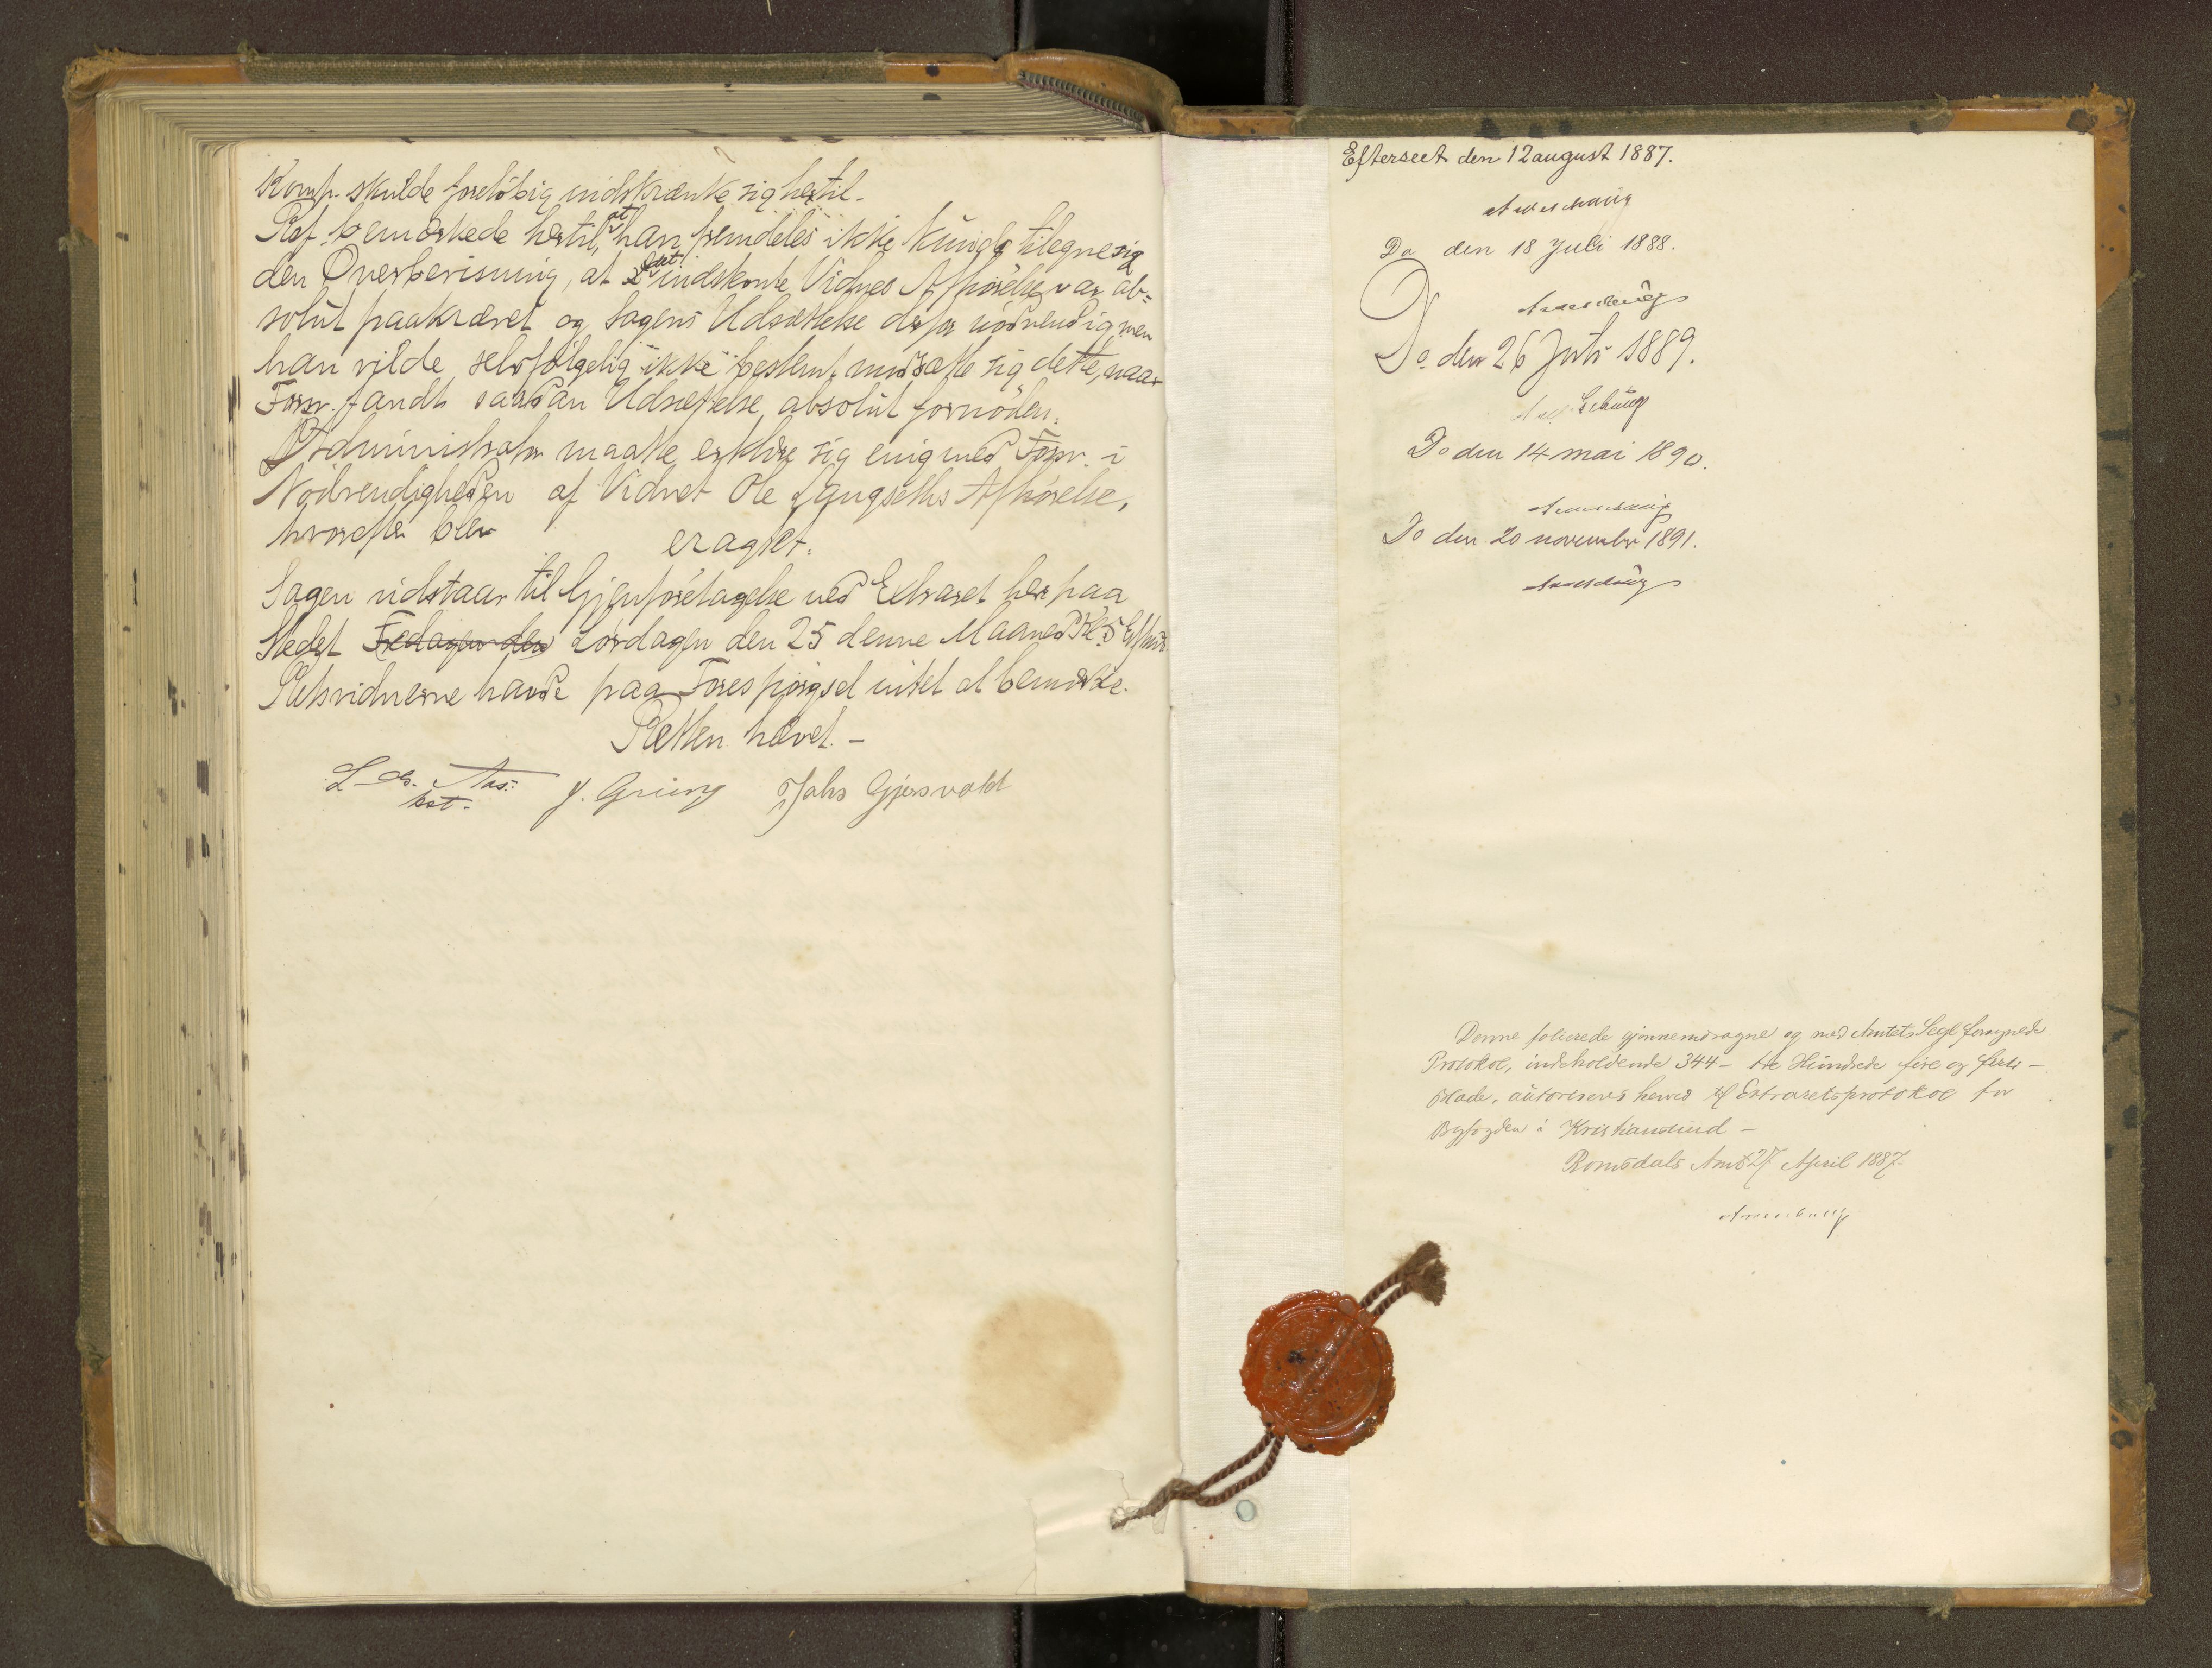 Komp. skulde foreløbig indskrænke sig hertil.
Ref. bemærkede hertil, at han fremdeles ikke kunde tilegne sig
den Overbevisning, at det indstevnte Vidnes Afhørelse var ab=
solut paakrævet og Sagens Udsættelse derfor nødvendig, men
han vilde selvfølgelig ikke bestemt modsætte sig dette, naar
Forsv. fandt saadan Udsættelse absolut fornøden.
Administrator maatte erklære sig enig med Forsv. i
Nødvendigheden af Vidnet Ole Afhørelse,
hvorefter blev
eragtet:
Sagen udstaar til Gjenforetagelse ved Extraret her paa
Stedet Fredagen den Lørdagen den 25 denne Maaned Kl. 5 Efterm.
Retsvidnerne havde paa Forespørgsel intet at bemærke.
Retten hævet. –
Ass. J. Grüng Johs Gjersvold
kst.
Efterseet den 12 august 1887.
Do den 18 Juli 1888.
Do den 26 Juli 1889.
Do den 14 mai 1890.
Do den 20 november 1891.
Denne folierede gjennemdragne og med Amtets Segl forsynede
Protokol, indeholdende 344 – tre Hundrede fire og firti –
Blade, autoriseres herved til Extraretsprotokol for
Byfogden i Kristiansund –
Romsdals Amt 27 April 1887.